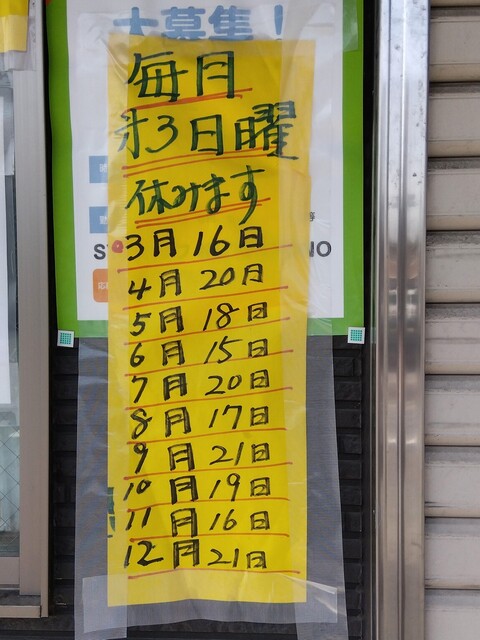 大募集！
毎月
才3日曜
休みます
3月16日
4月20日
5月18日
6月15日
7月20日
8月17日
9月21日
10月19日
11月16日
12月21日